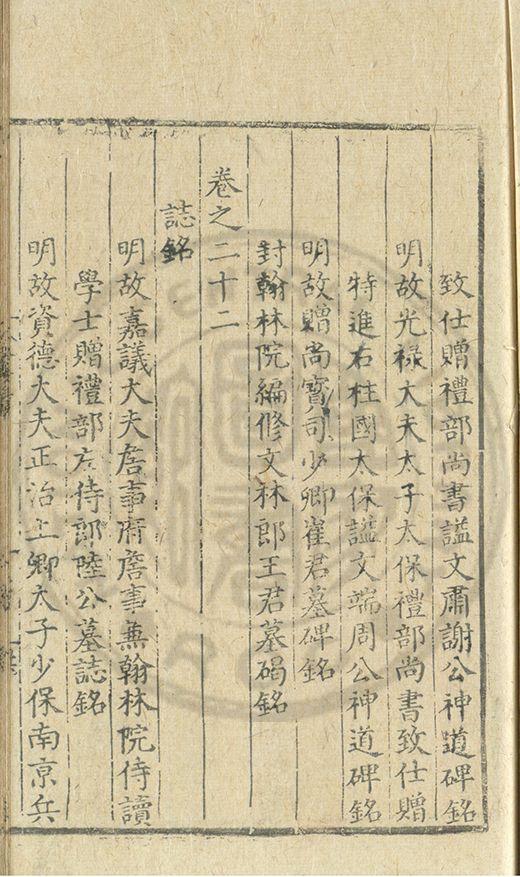 致仕贈禮部尚書謚文肅謝公神道碑銘
明故光祿大夫太子太保禮部尚書致仕贈
特進右柱國太保謚文端周公神道碑銘
明故贈尚寶司少卿崔君墓碑銘
封翰林院編修文林郎王君墓碣銘
卷之二十二
誌銘
明故嘉議大夫詹事府詹事兼翰林院侍讀
學士贈禮部左侍郎陸公墓誌銘
明故資德大夫正治上卿太子少保南京兵